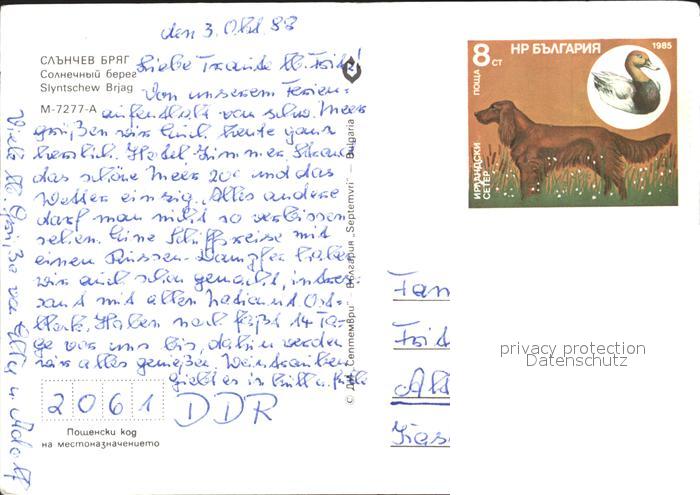 den 3. Okt. 88
СЛЪНЧЕВ БРЯГ
Солнечный берег
Slyntschew Brjag
М-7277-А
Liebe Traude lb. Fritz!
Von unserem Ferien-
aufenthalt vom schw. Meer
grüßen wir Euch heute ganz
herzlich. Hotel-Zimmer Strand
das schöne Meer 20° und das
Wetter einzig. Alles andere
darf man nicht so verbissen
sehen. Eine Schiffsreise mit
einen Russen-Dampfer haben
wir auch schon gemacht, interes-
sant mit allen Nationen Ost-
block. Haben noch fast 14 Ta-
ge vor uns bis, dahin werden
wir alles genießen Weintrauben
giebt es in Hüll u. Fülle
Viele lb. Grüße von Elly u. Adolf
2061 DDR
Пощенски код
на местоназначението
© ДИ „Септември" — България „Septemvri" — Bulgaria
8 СТ
ПОЩА
НР БЪЛГАРИЯ
1985
ИРЛАНДСКИ
СЕТЕР
Fam
Frit
privacy protection
Datenschutz